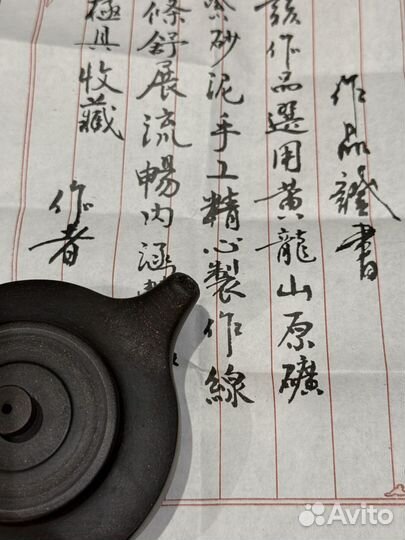 作品證書
該作品選用黃龍山原礦
紫砂泥手工精心製作線
條舒展流暢內涵
極具收藏
作者
Avito